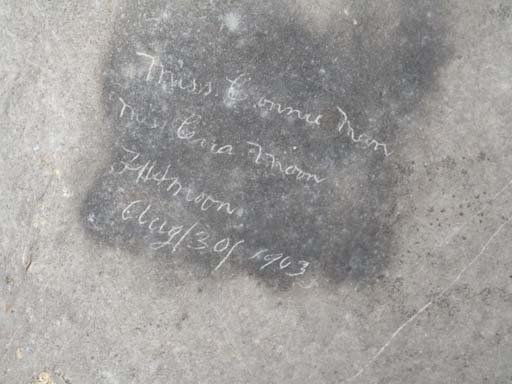 Miss. Connie Moon
Miss Cora Moon
Moon
Aug/30/1903